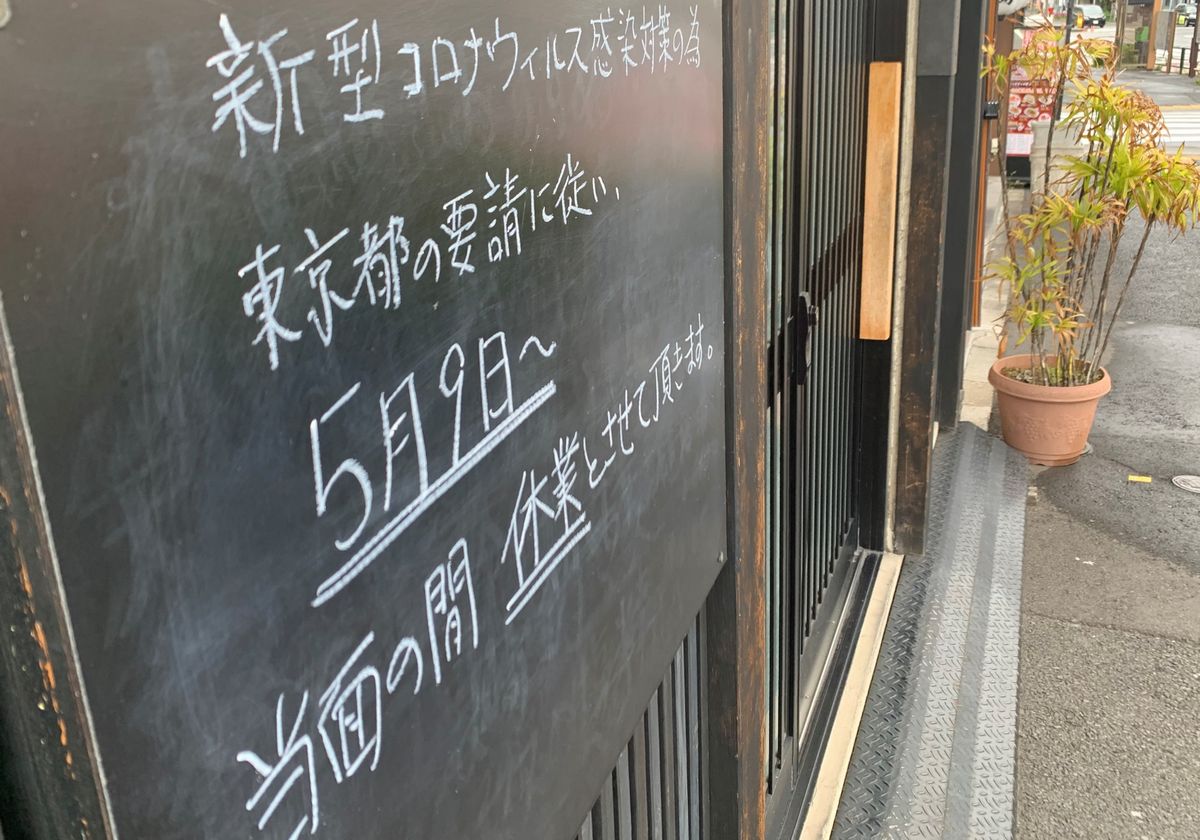 新型コロナウィルス感染対策の為
東京都の要請に従い、
5月9日〜
当面の間 休業とさせて頂きます。